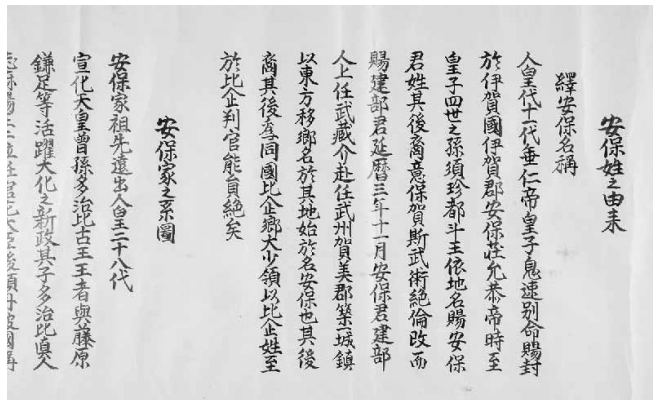 安保姓之由来
繹安保名稱
人皇代十一代垂仁帝皇子息速別命賜封
於伊賀國伊賀郡安保莊允恭帝時至
皇子四世之孫須珍都斗王依地名賜安保
君姓其後裔意保賀斯武術絕倫改而
賜建部君延曆三年十一月安保君建部
人上任武藏介赴任武州賀美郡築城鎮
以東方移鄉名於其地始於名安保也其後
裔其後為同國比企鄉大少領以比企姓至
於比企判官能員絕矣
安保家之系圖
安保家祖先遠出人皇二十八代
宣化天皇曾孫多治比古王王者與藤原
鎌足等活躍大化之新政其子多治比真人